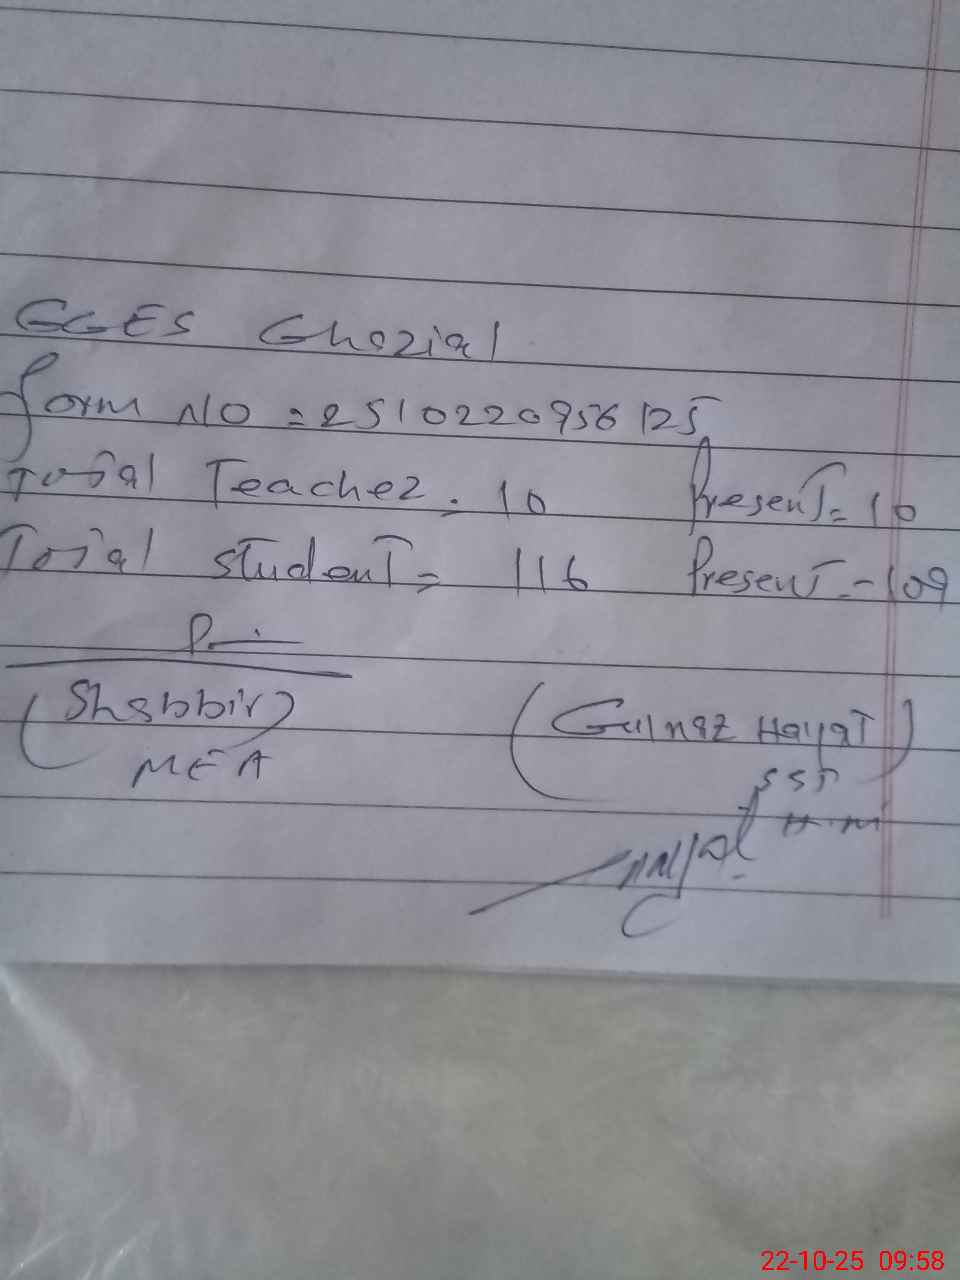 GGES Ghazial
Form NO = 2510220956125
Total Teacher. 10 Present = 10
Total Student = 116 Present - 109
(Shabbir)
MEA
(Gulnaz Hayat)
SST
22-10-25 09:58